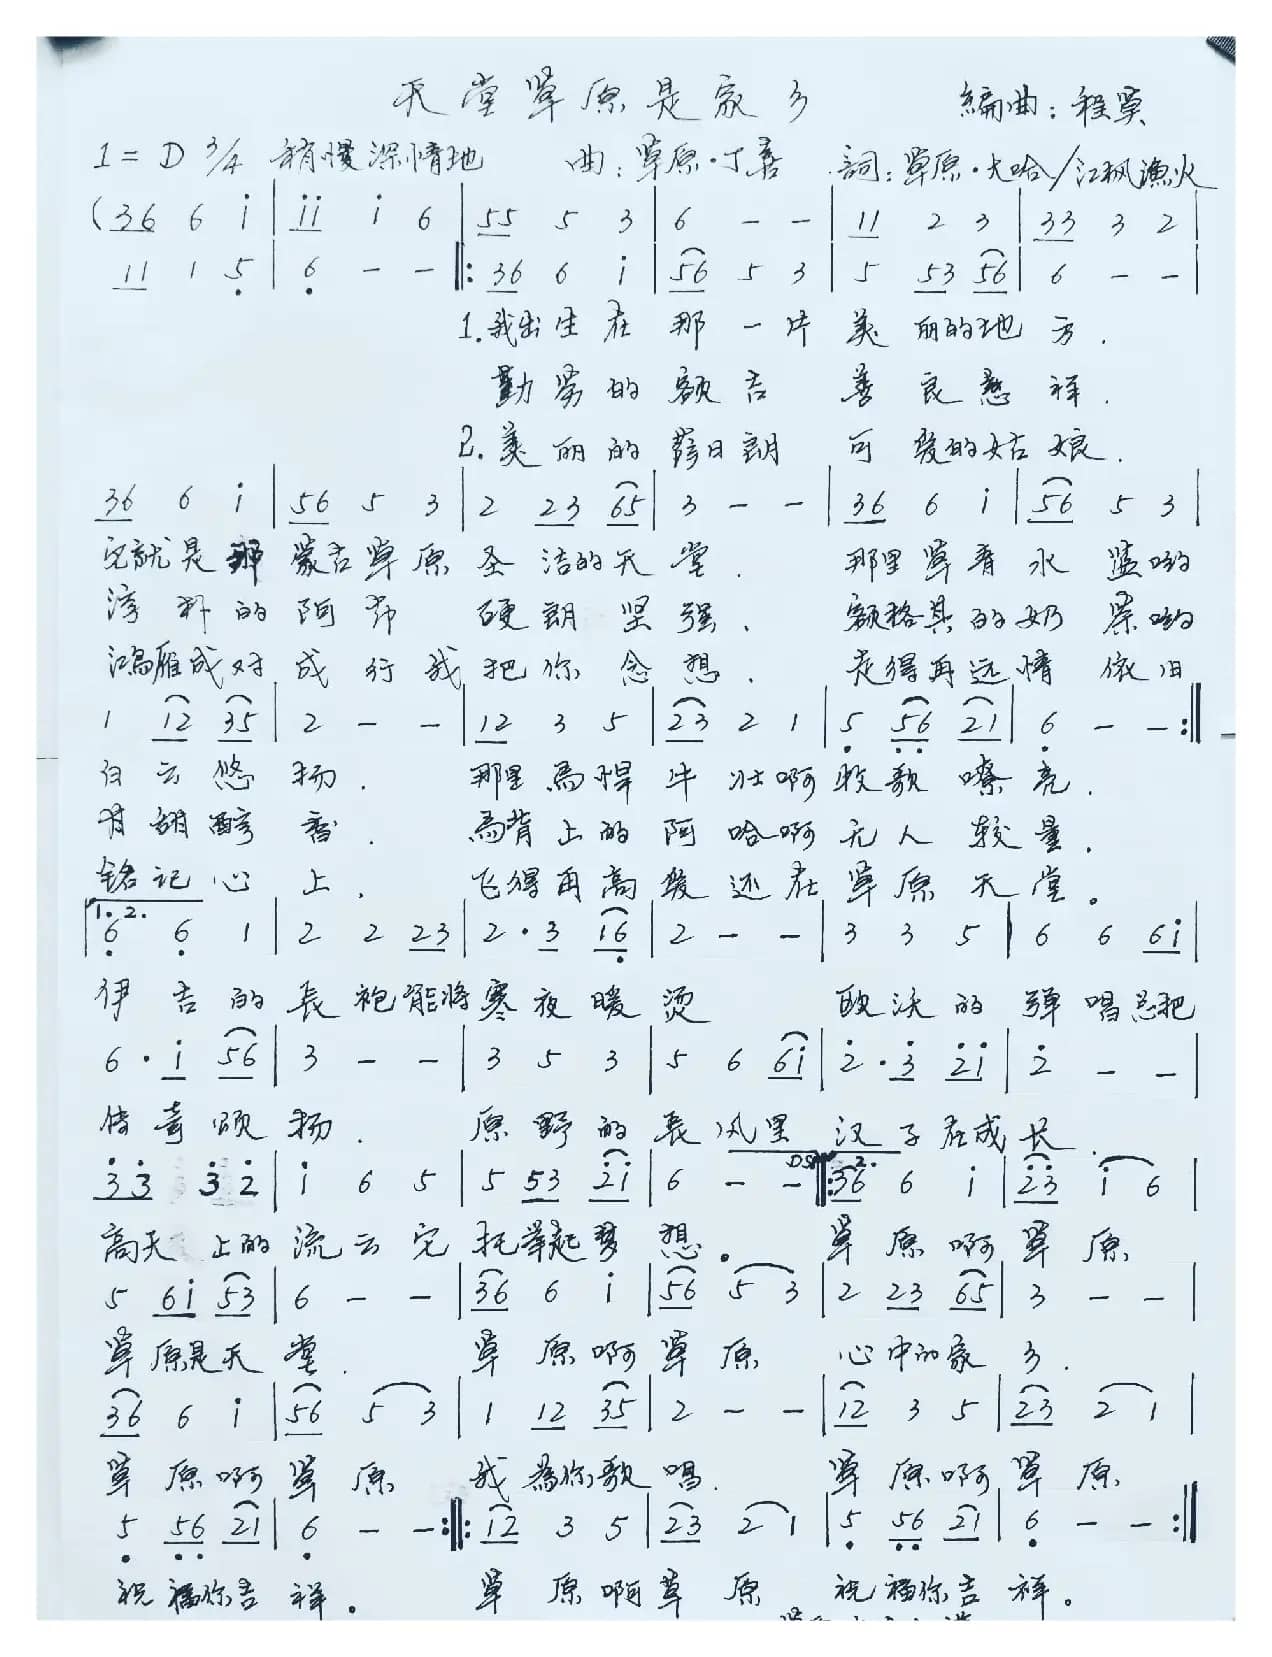 天堂草原是家乡
編曲：程昊
1=D 3/4 稍慢深情地 曲：草原·丁喜 詞：草原·大哈/江枫漁火
(36 6 i | ii i 6 | 55 5 3 | 6 - - | 11 2 3 | 33 3 2 |
11 1 5 | 6 - - ‖: 36 6 i | 56 5 3 | 5 53 56 | 6 - - |
1.我出生在那一片美丽的地方.
勤劳的额吉善良慈祥.
2.美丽的萨日朗可爱的姑娘.
36 6 i | 56 5 3 | 2 23 65 | 3 - - | 36 6 i | 56 5 3 |
它就是那蒙古草原圣洁的天堂. 那里草青水蓝哟
淳朴的阿布硬朗坚强. 额格其的奶茶哟
鸿雁成对成行我把你念想. 走得再远情依旧
1 12 35 | 2 - - | 12 3 5 | 23 2 1 | 5 56 21 | 6 - - :‖
白云悠扬. 那里馬悍牛壮啊牧歌嘹亮.
甘甜醇香. 馬背上的阿哈啊无人较量.
铭记心上. 飞得再高爱还在草原天堂。
1.2.
6 6 1 | 2 2 23 | 2·3 16 | 2 - - | 3 3 5 | 6 6 6i |
伊吉的長袍能將寒夜暖烫 欧沃的弹唱总把
6·i 56 | 3 - - | 3 5 3 | 5 6 6i | 2·3 2i | 2 - - |
传奇颂扬. 原野的長风里汉子在成长.
DS 2.
33 32 | i 6 5 | 5 53 2i | 6 - - ‖: 36 6 i | 23 i 6 |
高天上的流云它托举起梦想。草原啊草原
5 6i 53 | 6 - - | 36 6 i | 56 5 3 | 2 23 65 | 3 - - |
草原是天堂. 草原啊草原心中的家乡.
36 6 i | 56 5 3 | 1 12 35 | 2 - - | 12 3 5 | 23 2 1 |
草原啊草原我為你歌唱. 草原啊草原
5 56 21 | 6 - - :‖: 12 3 5 | 23 2 1 | 5 56 21 | 6 - - :‖
祝福你吉祥。草原啊草原祝福你吉祥。